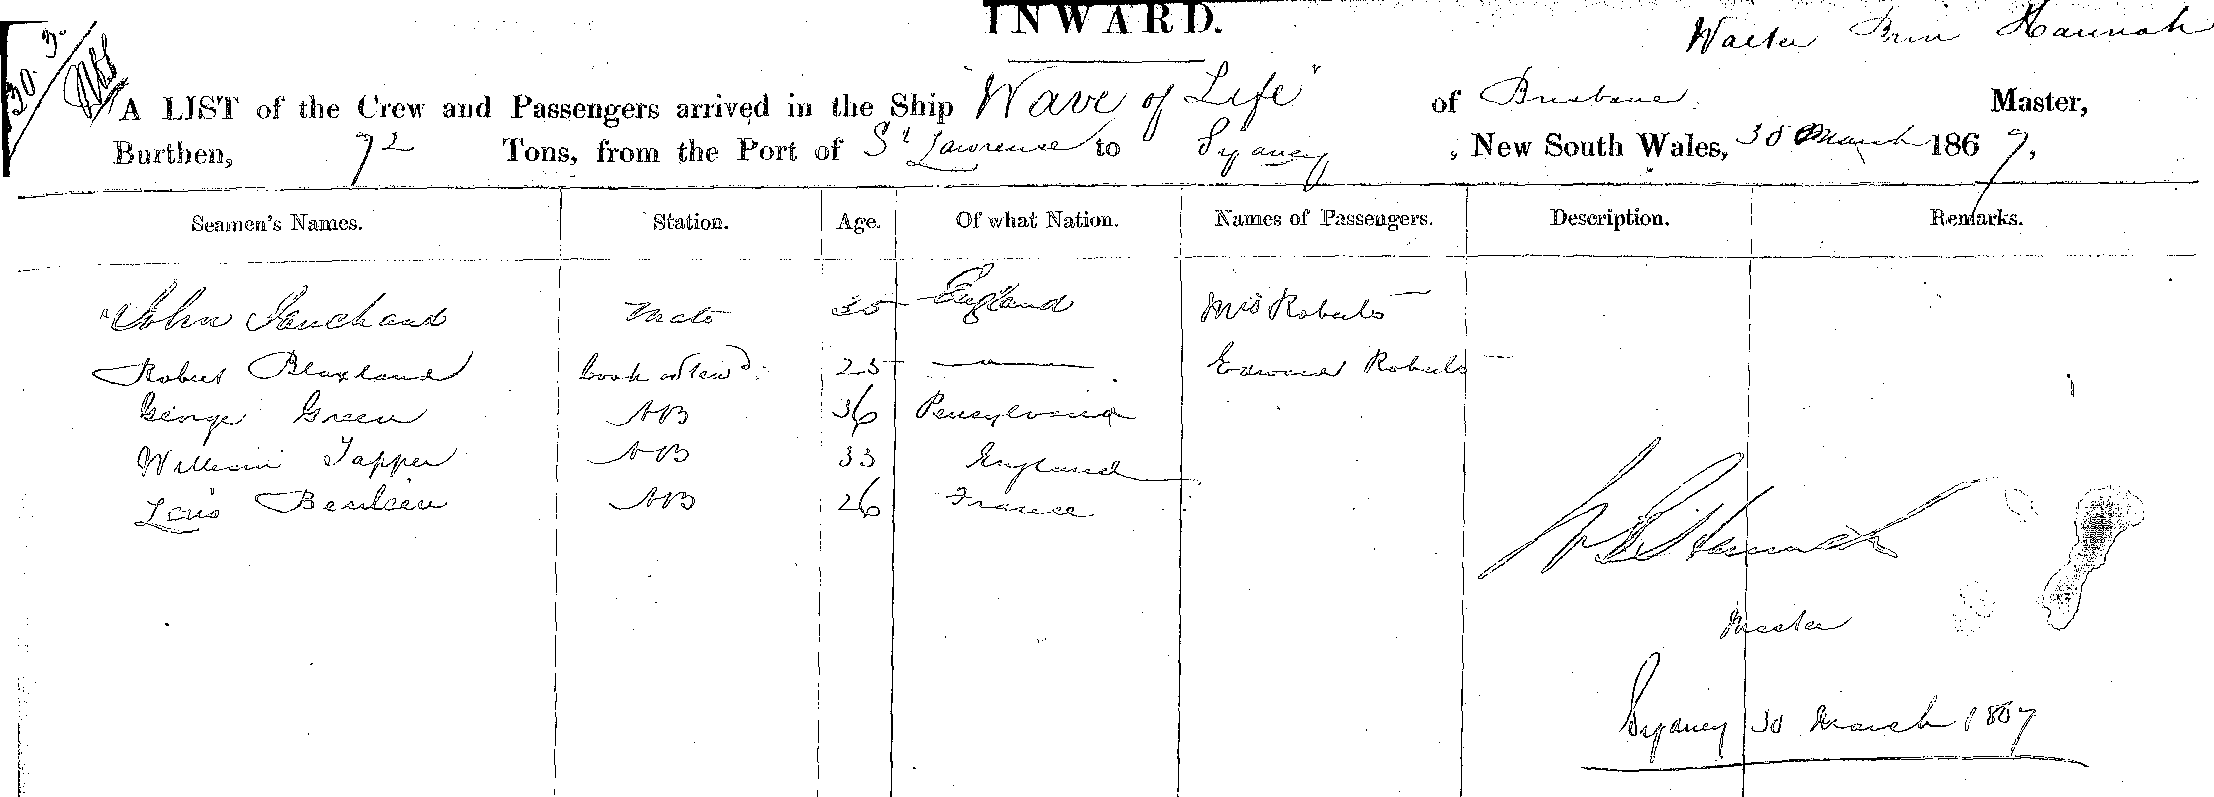 INWARD.
30.3.
Walter Hannah
A LIST of the Crew and Passengers arrived in the Ship "Wave of Life" of Brisbane. Master,
Burthen, 72 Tons, from the Port of St Lawrence to Sydney, New South Wales, 30 March 1867,
Seamen's Names. Station. Age. Of what Nation. Names of Passengers. Description. Remarks.
John Mate 35 England Mrs Roberts
Robert Blaxland Cook & Stewd. 25 — " — Edward Roberts
George Green AB 36 Pensylvania
William Tapper AB 33 England
Louis AB 26 France
W B Hannah
Master
Sydney 30 March 1867